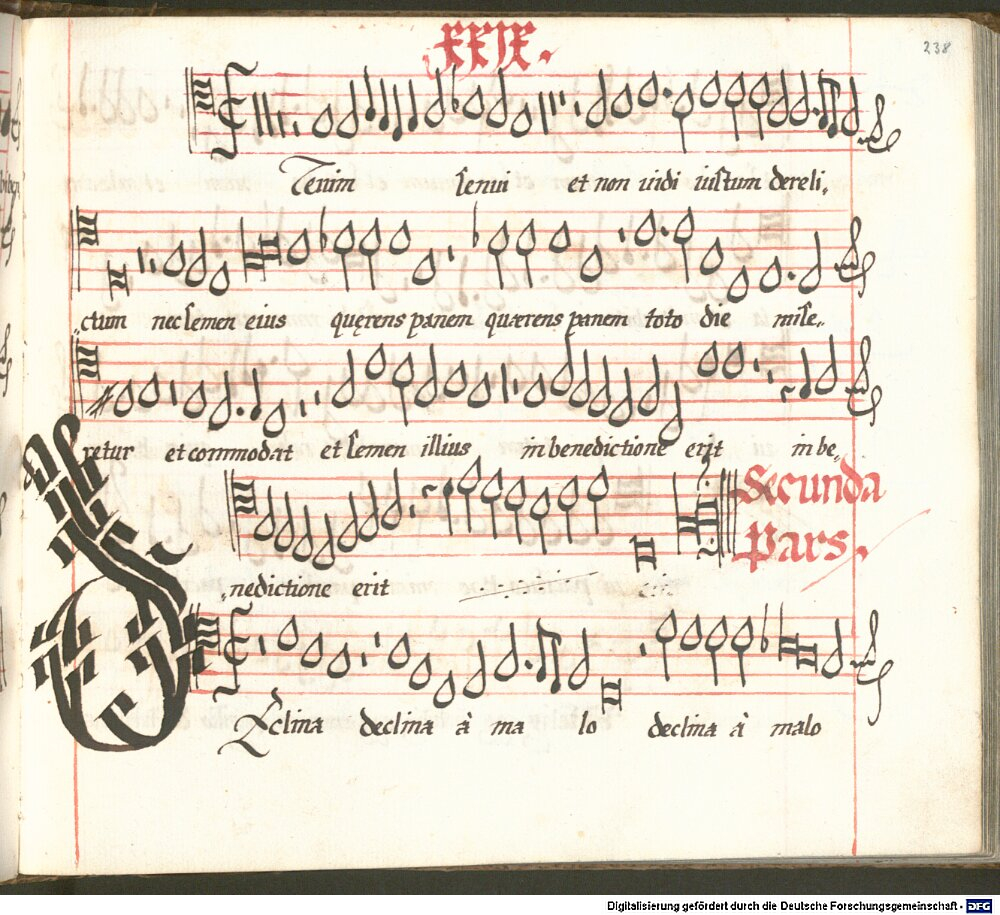 XXIX.
238
Tenim senui et non uidi iustum dereli,
ctum nec semen eius quęrens panem quærens panem toto die mise,
retur et commodat et semen illius in benedictione erit in be,
Secunda
Pars.
nedictione erit
Eclina declina à malo declina à malo
Digitalisierung gefördert durch die Deutsche Forschungsgemeinschaft - DFG